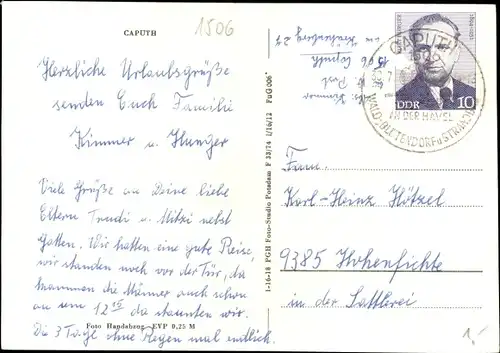 CAPUTH
1506
Herzliche Urlaubsgrüße
senden Euch Familie
Kimmer u. Hunger
Viele Grüße an Deine liebe
Eltern Trudi u. Mitzi nebst
Gatten. Wir hatten eine gute Reise,
wir standen noch vor der Tür, da
kammen die Männer auch schon
an um 12 da staunten wir.
Die 3 Tage ohne Regen mal endlich.
Foto Handabzug EVP 0,25 M
1-16-18 PGH Foto-Studio Potsdam F 33/74 I/16/12 FuG 006
Kimmer
Post
1506 Caputh
CAPUTH
1506
AN DER HAVEL
DDR 10
Fam.
Karl-Heinz Hötzel
9385 Hohenfichte
in der Sattlerei
1,-